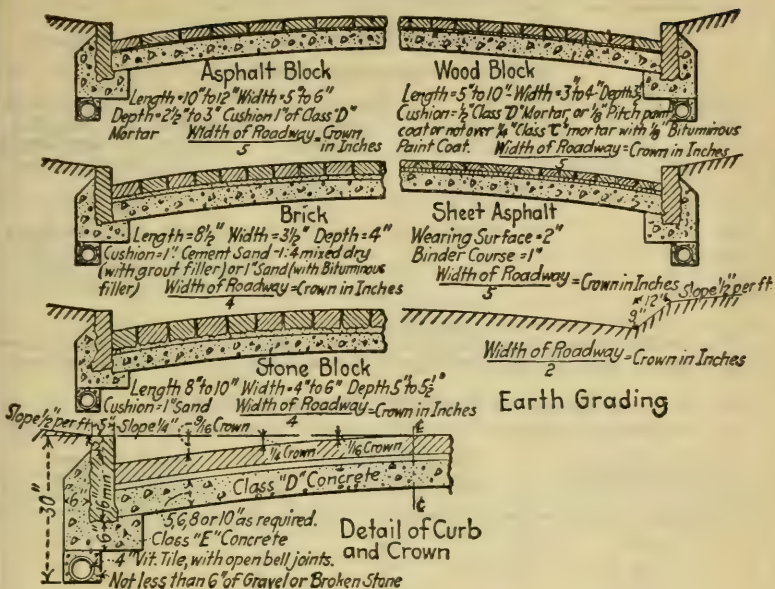 Asphalt Block
Length=10"to12" Width=5"to 6"
Depth=2½"to 3" Cushion 1"of Class "D"
Mortar Width of Roadway =Crown
5 in Inches
Wood Block
Length=5"to10" Width=3"to4" Depth3½"
Cushion=½"Class"D"Mortar or ⅛"Pitch paint
coat or not over "Class"C"mortar with ⅛"Bituminous
Paint Coat. Width of Roadway=Crown in Inches
5
Brick
Length=8½" Width=3½" Depth=4"
Cushion=1" Cement Sand-1:4 mixed dry
(with grout filler) or 1"Sand (with Bituminous
filler) Width of Roadway=Crown in Inches
4
Sheet Asphalt
Wearing Surface=2"
Binder Course=1"
Width of Roadway=Crown in Inches
5
Stone Block
Length 8"to10" Width=4"to6" Depth5"to5½"
Cushion=1"Sand Width of Roadway=Crown in Inches
4
12" Slope½"per ft.
9"
Width of Roadway=Crown in Inches
2
Earth Grading
Slope½"per ft. 5" Slope¼" 9/16 Crown
¼ Crown 1/16 Crown
30" 6" 6"min. Class "D" Concrete
6"
5,6,8 or 10"as required.
Class "E" Concrete
4"Vit. Tile, with open bell joints.
Not less than 6"of Gravel or Broken Stone
Detail of Curb
and Crown